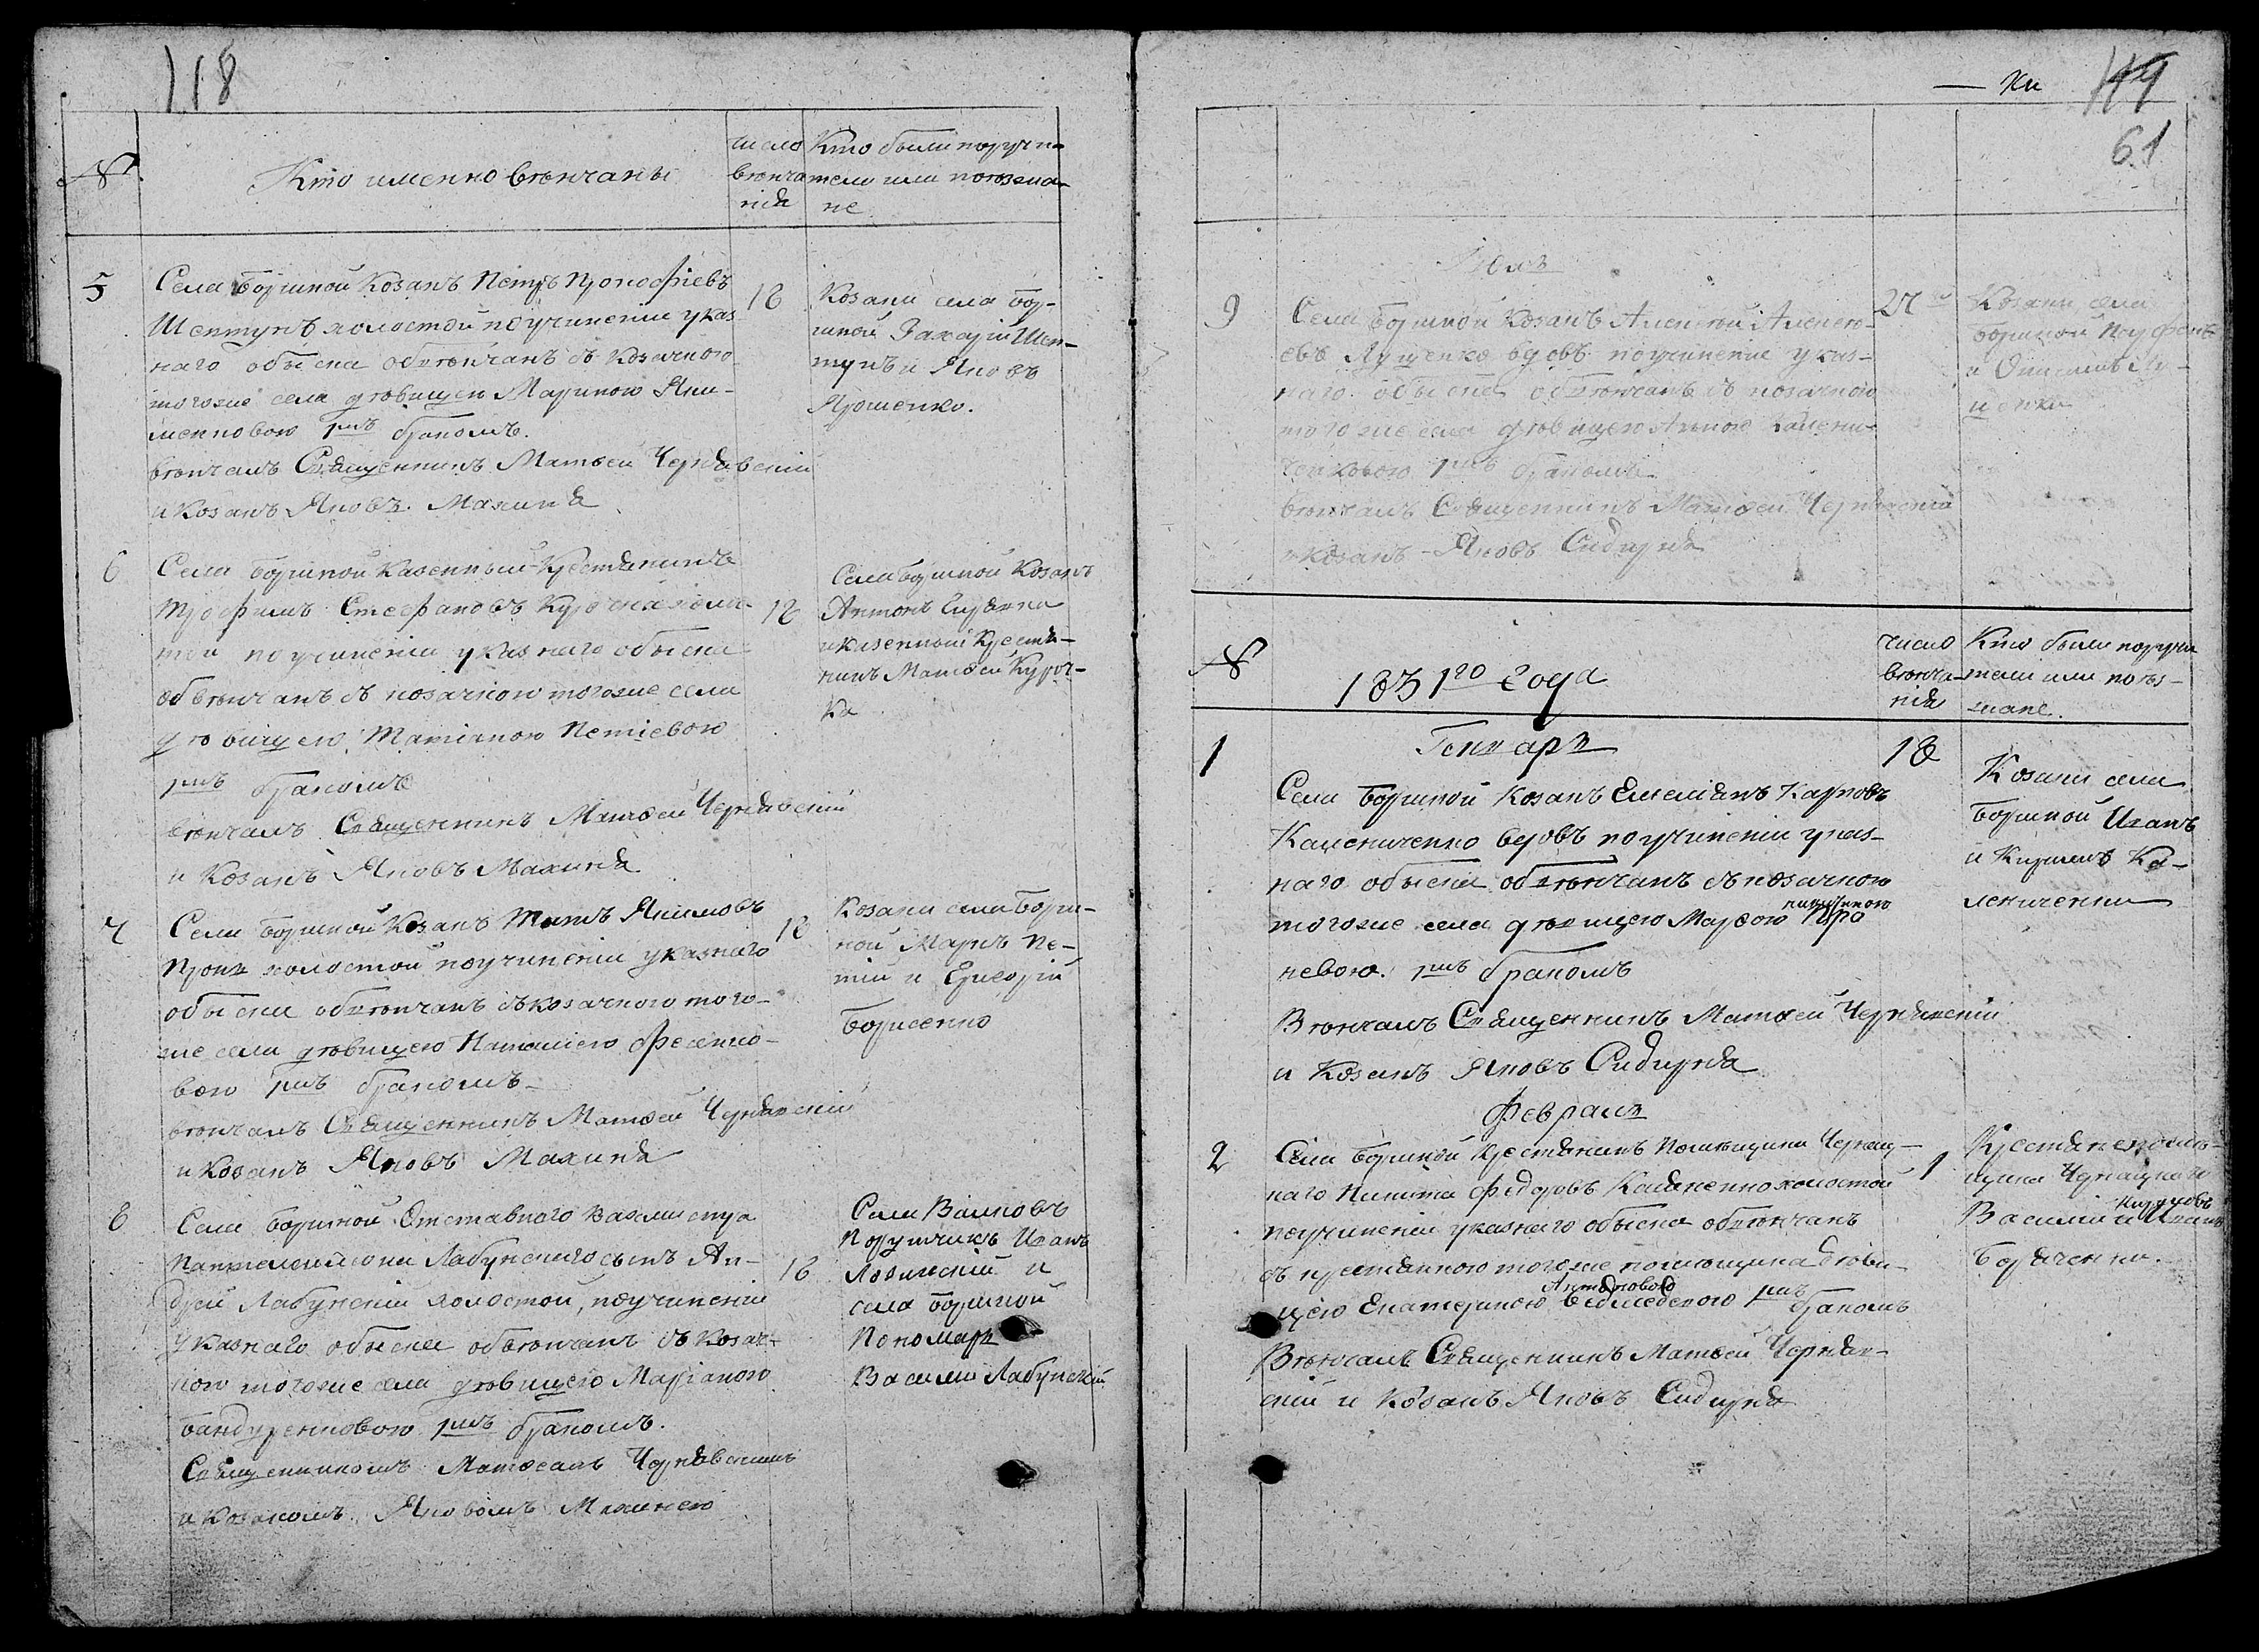 118
№
Кто именно венчаны
число венчания
Кто были поручители или поезжане
5
Села Боршной Козакъ Петръ Прокофіевъ
Шептунъ холостой по учиненіи указ
наго обыска обвѣнчанъ съ козачкою
того же села дѣвицею Мариною Яки-
менковою 1мъ бракомъ.
вѣнчалъ Священникъ Матѳей Чернявскій
и Козакъ Яковъ Махиня
18
Козаки села Бор-
шной Захарій Шеп-
тунъ и Яковъ
Ярошенко.
6
Села Боршной Казенный Крестянинъ
Трофимъ Стефановъ Курочка холос-
той по учиненіи указнаго обыска
обвѣнчанъ съ козачкою того же села
дѣвицею Татіяною Петіевою
1мъ бракомъ
вѣнчалъ Священникъ Матѳей Чернявскій
и Козакъ Яковъ Махиня
18
Села Боршной Козакъ
Антонъ
и казенный Крестя-
нинъ Матѳей Куроч-
ка
7
Села Боршной Козакъ Титъ Якимовъ
Проня холостой по учиненіи указнаго
обыска обвѣнчанъ съ козачкою того-
же села дѣвицею Наталіею Фесенко-
вою 1мъ бракомъ
вѣнчалъ Священникъ Матѳей Чернявскій
и Козакъ Яковъ Махиня
18
Козаки села Борш-
ной Маркъ Пе-
тій и Григорій
Борисенко
8
Села Боршной Отставного Вахмистра
Пантелеймона Лабунскаго сынъ Ан-
дрей Лабунскій холостой, по учиненіи
указнаго обыска обвѣнчанъ съ Козач-
кою того же села дѣвицею Маріаною
Бандуренковою 1мъ бракомъ.
Священникомъ Матѳеемъ Чернявскимъ
и Козакомъ Яковомъ Махинею
18
Села Валковъ
Поручикъ Иванъ
и
села Боршной
Пономарь
Василій Лабунскій
— Кн 119
61
Юль
9
Села Боршной Козакъ Алексѣй Алексѣ-
евъ Луценко вдовъ по учиненіе указ-
наго обыска обвѣнчанъ съ козачкою
того же села дѣвицею Анною Камени-
ченковою 1мъ бракомъ
вѣнчалъ Священникъ Матѳей Чернявскій
и Козакъ Яковъ Сидирня
27
Козаки села
Боршной
и Лу-
ценки
№
1831го года
число
венча-
нія
Кто были поручи
тели или поез-
жане.
1
Генварь
Села Боршной Козакъ Емеліянъ Карповъ
Камениченко вдовъ по учиненіи указ-
наго обыска обвѣнчанъ съ козачкою
того же села дѣвицею Марѳою Про
невою. 1мъ бракомъ
Вѣнчалъ Священникъ Матѳей Чернявскій
и Козакъ Яковъ Сидирня
18
Козаки села
Боршной Иванъ
и Ка-
мениченки
Февраль
2
Села Боршной Крестянинъ Помѣщика Чернуц-
каго Никита Федоровъ холостой
по учиненіи указнаго обыска обвѣнчанъ
съ крестянкою того же помѣщика дѣви-
цею Екатериною Антоновою Ведмедевою 1мъ бракомъ
Вѣнчалъ Священникъ Матѳей Черняв-
скій и Козакъ Яковъ Сидирня
1
Крестяне помѣ-
щика Чернуцкаго
Василій и Иванъ